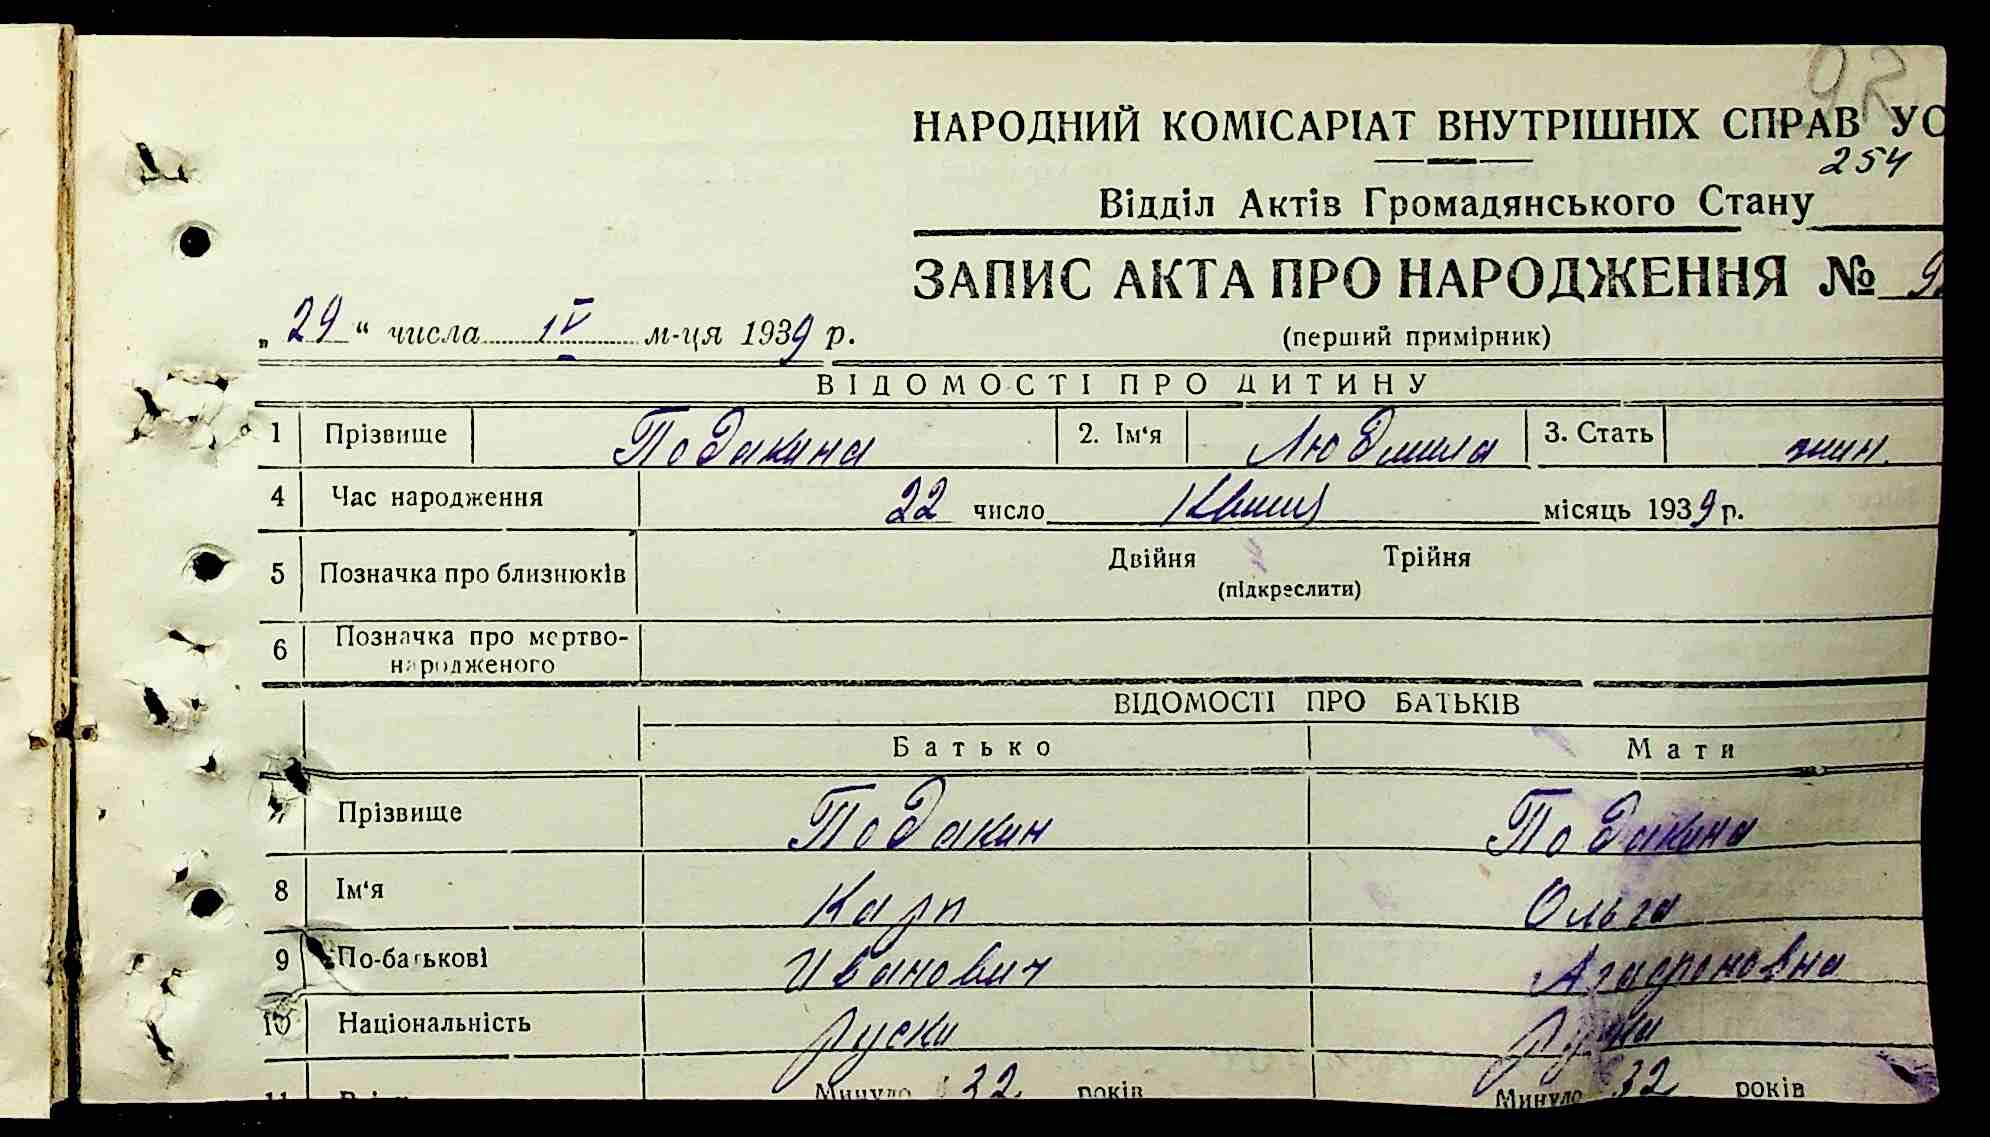 92
НАРОДНИЙ КОМІСАРІАТ ВНУТРІШНІХ СПРАВ УС
254
Відділ Актів Громадянського Стану
ЗАПИС АКТА ПРО НАРОДЖЕННЯ № 9
„29“ числа IV м-ця 1939 р.
(перший примірник)
ВІДОМОСТІ ПРО ДИТИНУ
1 Прізвище Подакина 2. Ім‘я Людмила 3. Стать жин.
4 Час народження 22 число Квітня місяць 1939 р.
5 Позначка про близнюків Двійня Трійня
(підкреслити)
6 Позначка про мертво-
народженого
ВІДОМОСТІ ПРО БАТЬКІВ
Батько Мати
7 Прізвище Подакин Подакина
8 Ім‘я Карп Ольга
9 По-батькові Иванович Агафроновна
10 Національність руски руска
11 Минуло 32 років Минуло 32 років